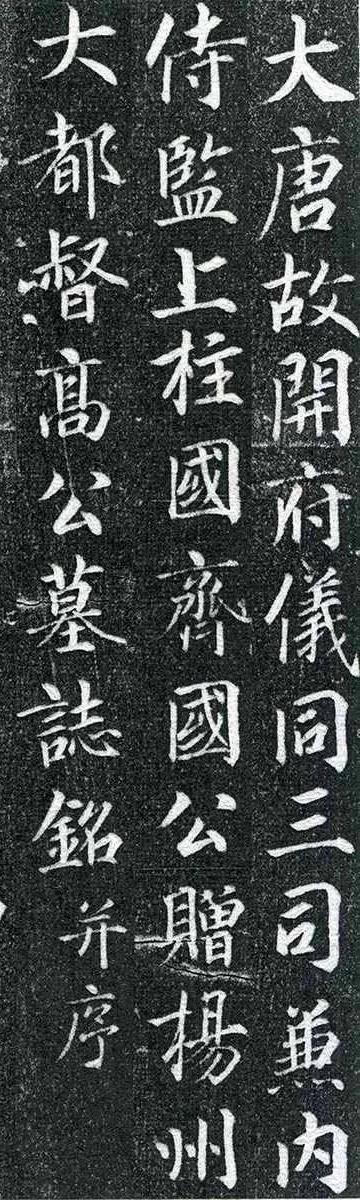 大唐故開府儀同三司兼内
侍監上柱國齊國公贈楊州
大都督髙公墓誌銘并序